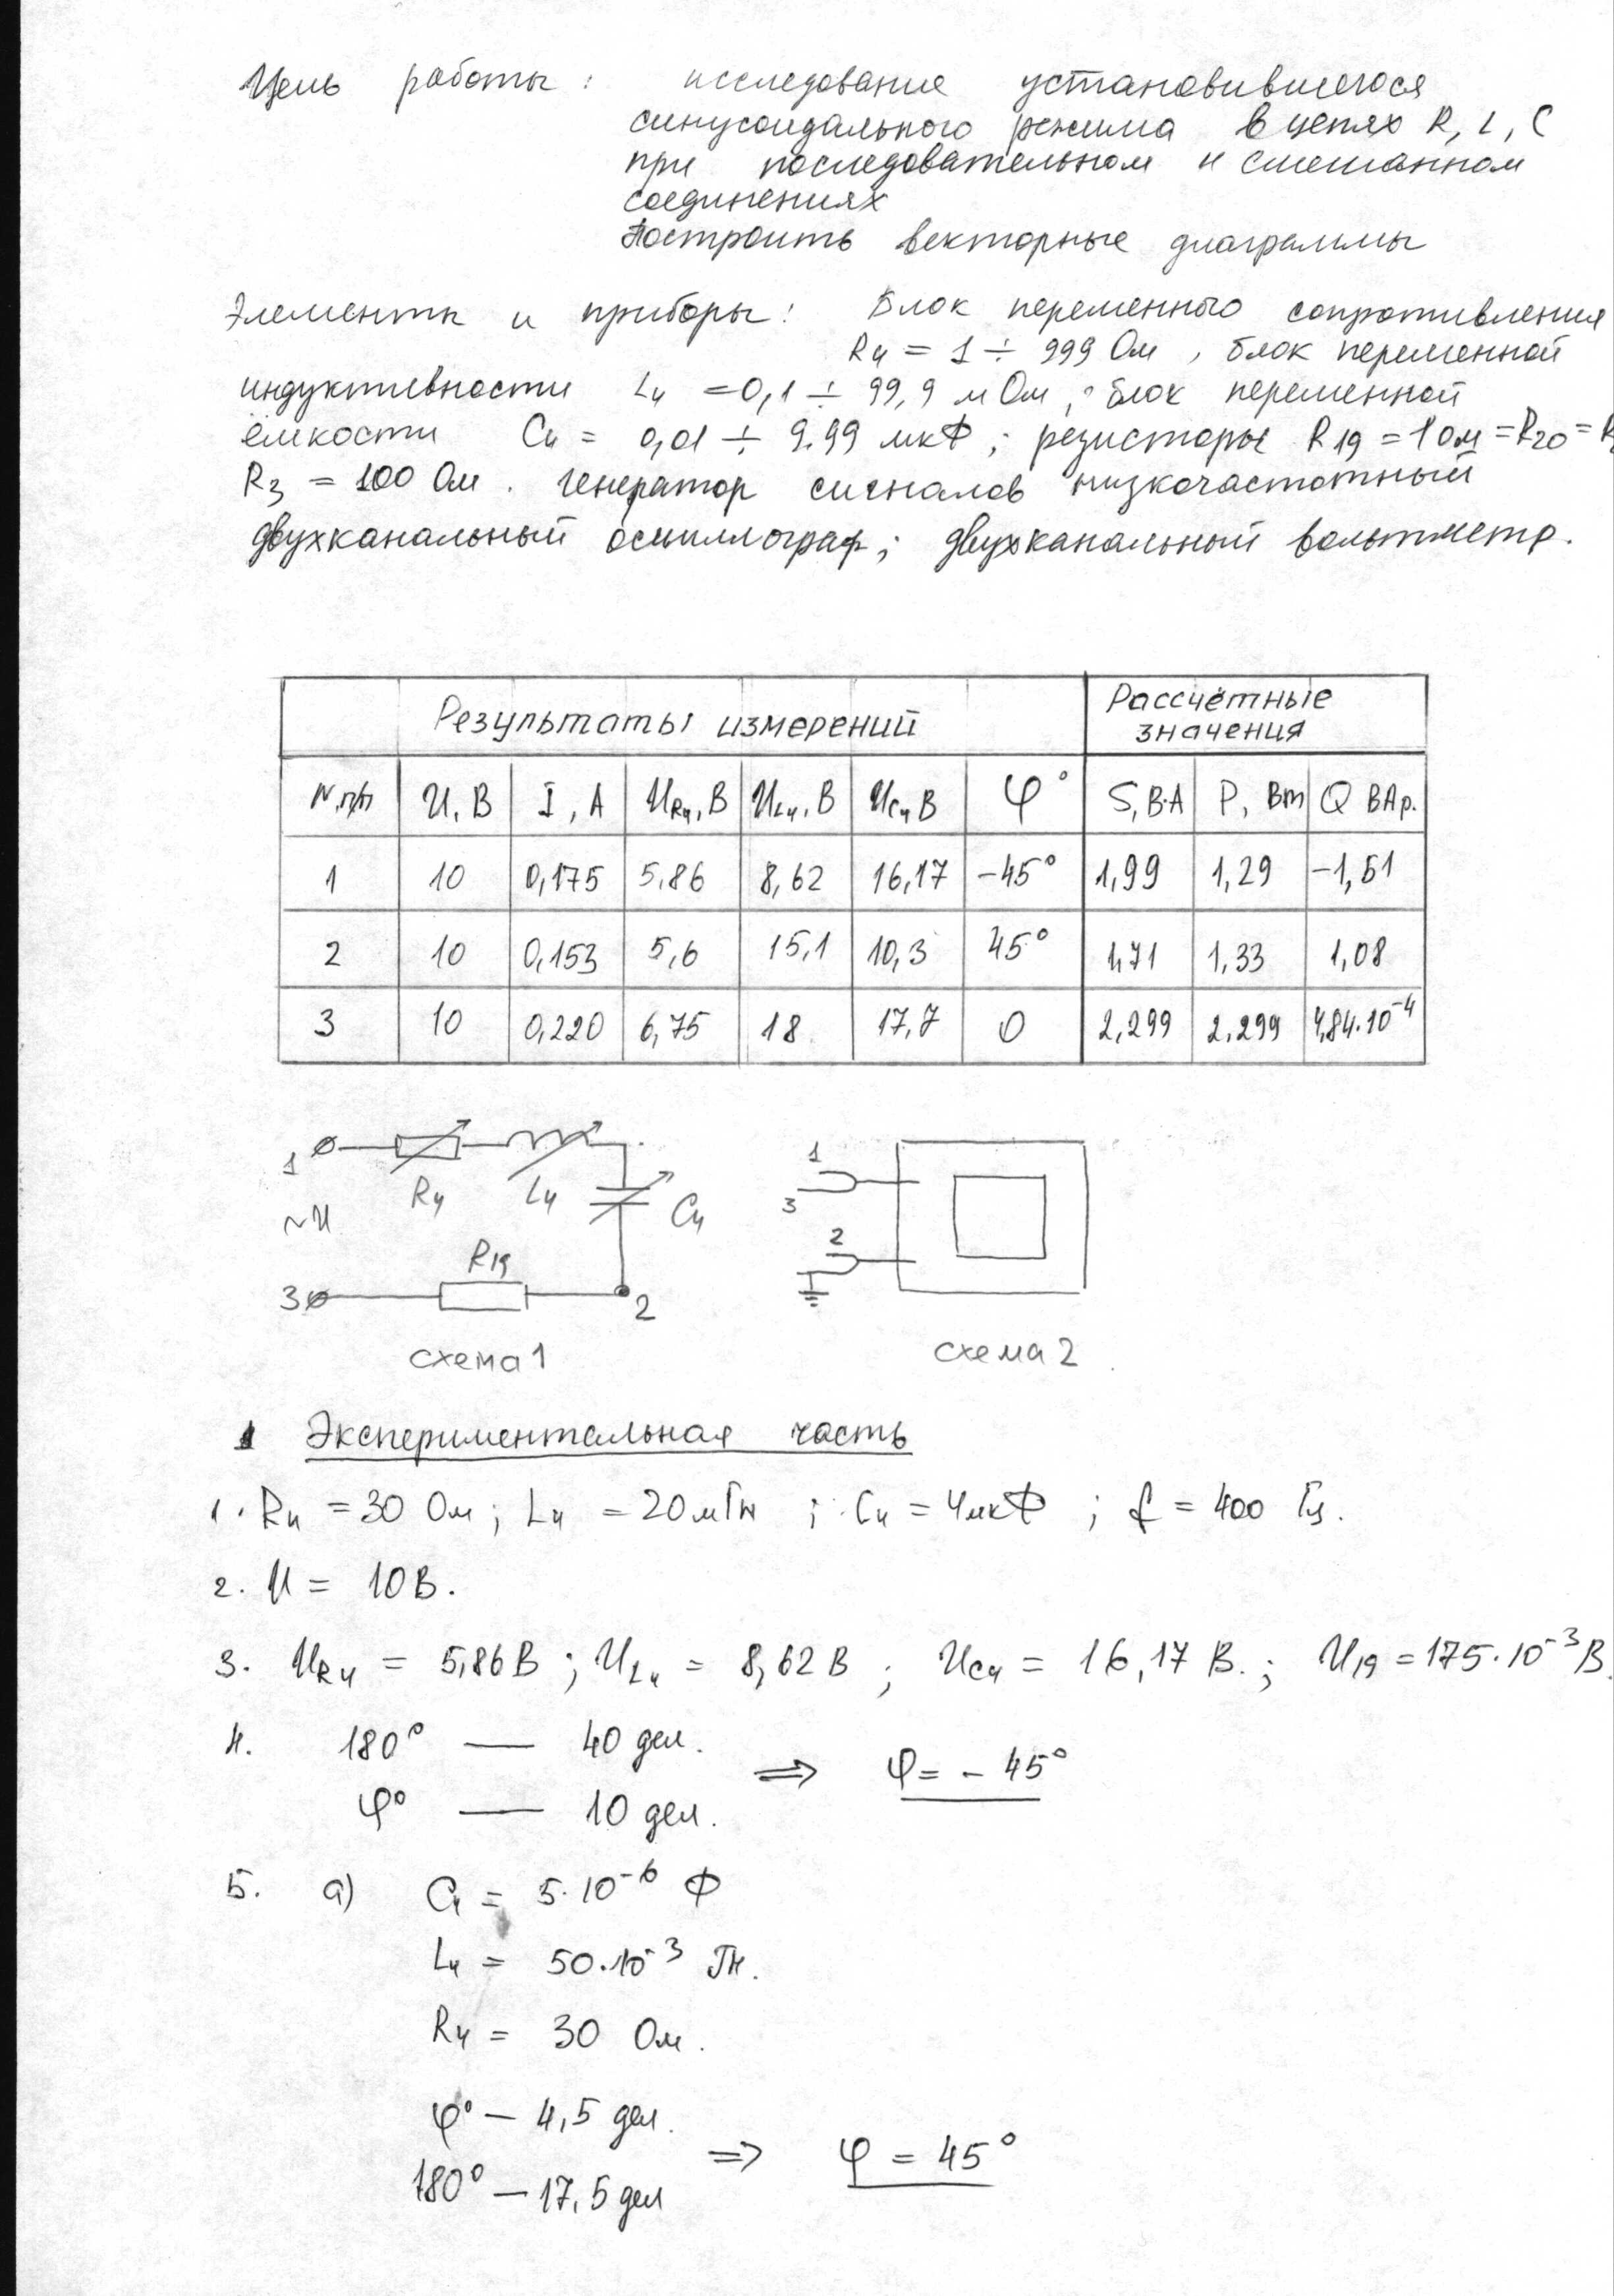 Цель работы: исследование установившегося
синусоидального режима в цепях R, L, C
при последовательном и смешанном
соединениях
Построить векторные диаграммы
Элементы и приборы: Блок переменного сопротивления
R₄ = 1 ÷ 999 Ом, блок переменной
индуктивности L₄ = 0,1 ÷ 99,9 мОм, блок переменной
ёмкости C₄ = 0,01 ÷ 9.99 мкФ; резисторы R₁₉ = 1 Ом = R₂₀ =
R₃ = 100 Ом. генератор сигналов низкочастотный
двухканальный осциллограф; двухканальный вольтметр.
Результаты измерений Рассчётные значения
N.п/п U, В I, A U_R₄, В U_L₄, В U_C₄ В φ° S, В·А P, Вт Q ВАр.
1 10 0,175 5,86 8,62 16,17 −45° 1,99 1,29 −1,51
2 10 0,153 5,6 15,1 10,3 45° 1,71 1,33 1,08
3 10 0,220 6,75 18 17,7 0 2,299 2,299 4,84·10⁻⁴
1 R₄ L₄ C₄
~U
R₁₉
3 2
схема 1
1
3
2
схема 2
1 Экспериментальная часть
1. R₄ = 30 Ом; L₄ = 20 мГн; C₄ = 4 мкФ; f = 400 Гц.
2. U = 10 В.
3. U_R₄ = 5,86 В; U_L₄ = 8,62 В; U_C₄ = 16,17 В.; U₁₉ = 175·10⁻³ В.
4. 180° — 40 дел.
φ° — 10 дел. ⇒ φ = − 45°
5. а) C₄ = 5·10⁻⁶ Ф
L₄ = 50·10⁻³ Гн.
R₄ = 30 Ом.
φ° — 4,5 дел.
180° — 17,5 дел ⇒ φ = 45°